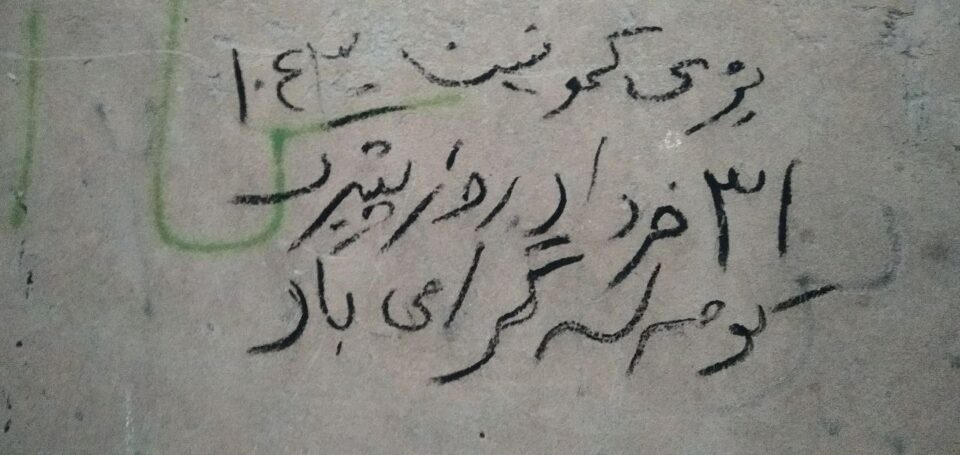 بژی کمونیست ۱۰٤۳
۳۱ خرداد روز
کومه له گرامی باد